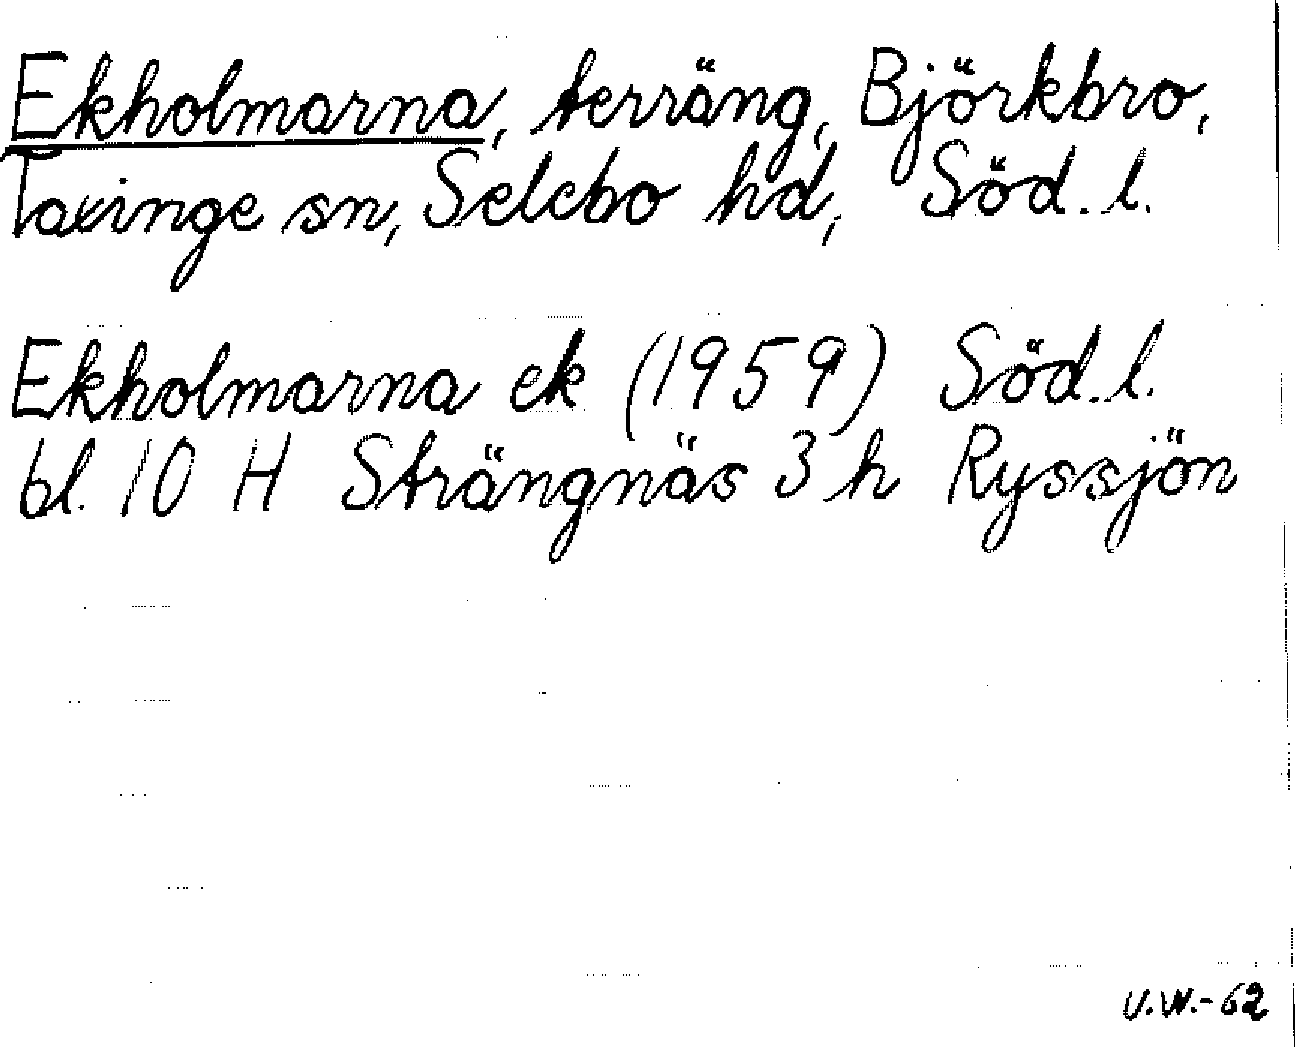 Ekholmarna, terräng, Björkbro,
Taxinge sn, Selebo hd, Söd. l.
Ekholmarna ek (1959) Söd. l.
bl. 10 H Strängnäs 3 h Ryssjön
V.W.-62